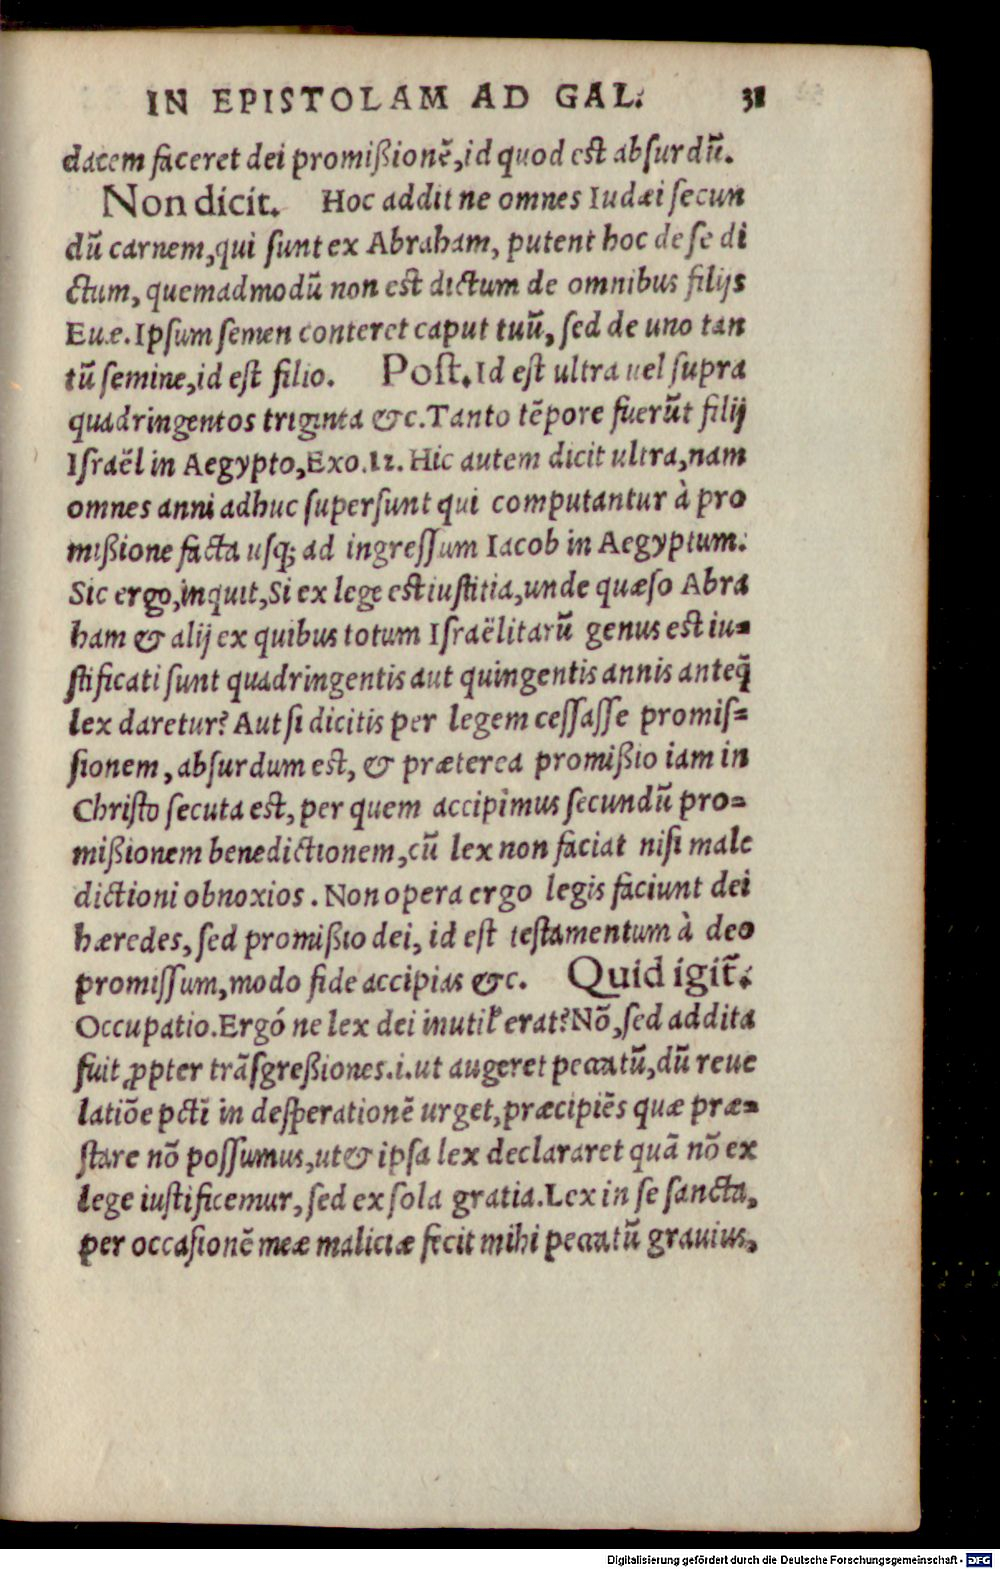 IN EPISTOLAM AD GAL. 38
dacem faceret dei promißionē, id quod est absurdū.
Non dicit. Hoc addit ne omnes Iudæi secun
dū carnem, qui sunt ex Abraham, putent hoc de se di
ctum, quemadmodū non est dictum de omnibus filijs
Euæ. Ipsum semen conteret caput tuū, sed de uno tan
tū semine, id est filio. Post. Id est ultra uel supra
quadringentos triginta &c. Tanto tēpore fuerūt filij
Israël in Aegypto, Exo. 12. Hic autem dicit ultra, nam
omnes anni adhuc supersunt qui computantur à pro
mißione facta usq; ad ingressum Iacob in Aegyptum.
Sic ergo, inquit, Si ex lege est iustitia, unde quæso Abra
ham & alij ex quibus totum Israëlitarū genus est iu=
stificati sunt quadringentis aut quingentis annis anteq̃
lex daretur? Aut si dicitis per legem cessasse promis=
sionem, absurdum est, & præterea promißio iam in
Christo secuta est, per quem accipimus secundū pro=
mißionem benedictionem, cū lex non faciat nisi male
dictioni obnoxios. Non opera ergo legis faciunt dei
hæredes, sed promißio dei, id est testamentum à deo
promissum, modo fide accipias &c. Quid igit̃.
Occupatio. Ergó ne lex dei inutil' erat? Nō, sed addita
fuit ꝓpter trāsgreßiones. i. ut augeret peccatū, dū reue
latiōe pctī in desperationē urget, præcipiēs quæ præ=
stare nō possumus, ut & ipsa lex declararet quā nō ex
lege iustificemur, sed ex sola gratia. Lex in se sancta,
per occasionē meæ maliciæ fecit mihi peccatū grauius,
Digitalisierung gefördert durch die Deutsche Forschungsgemeinschaft - DFG